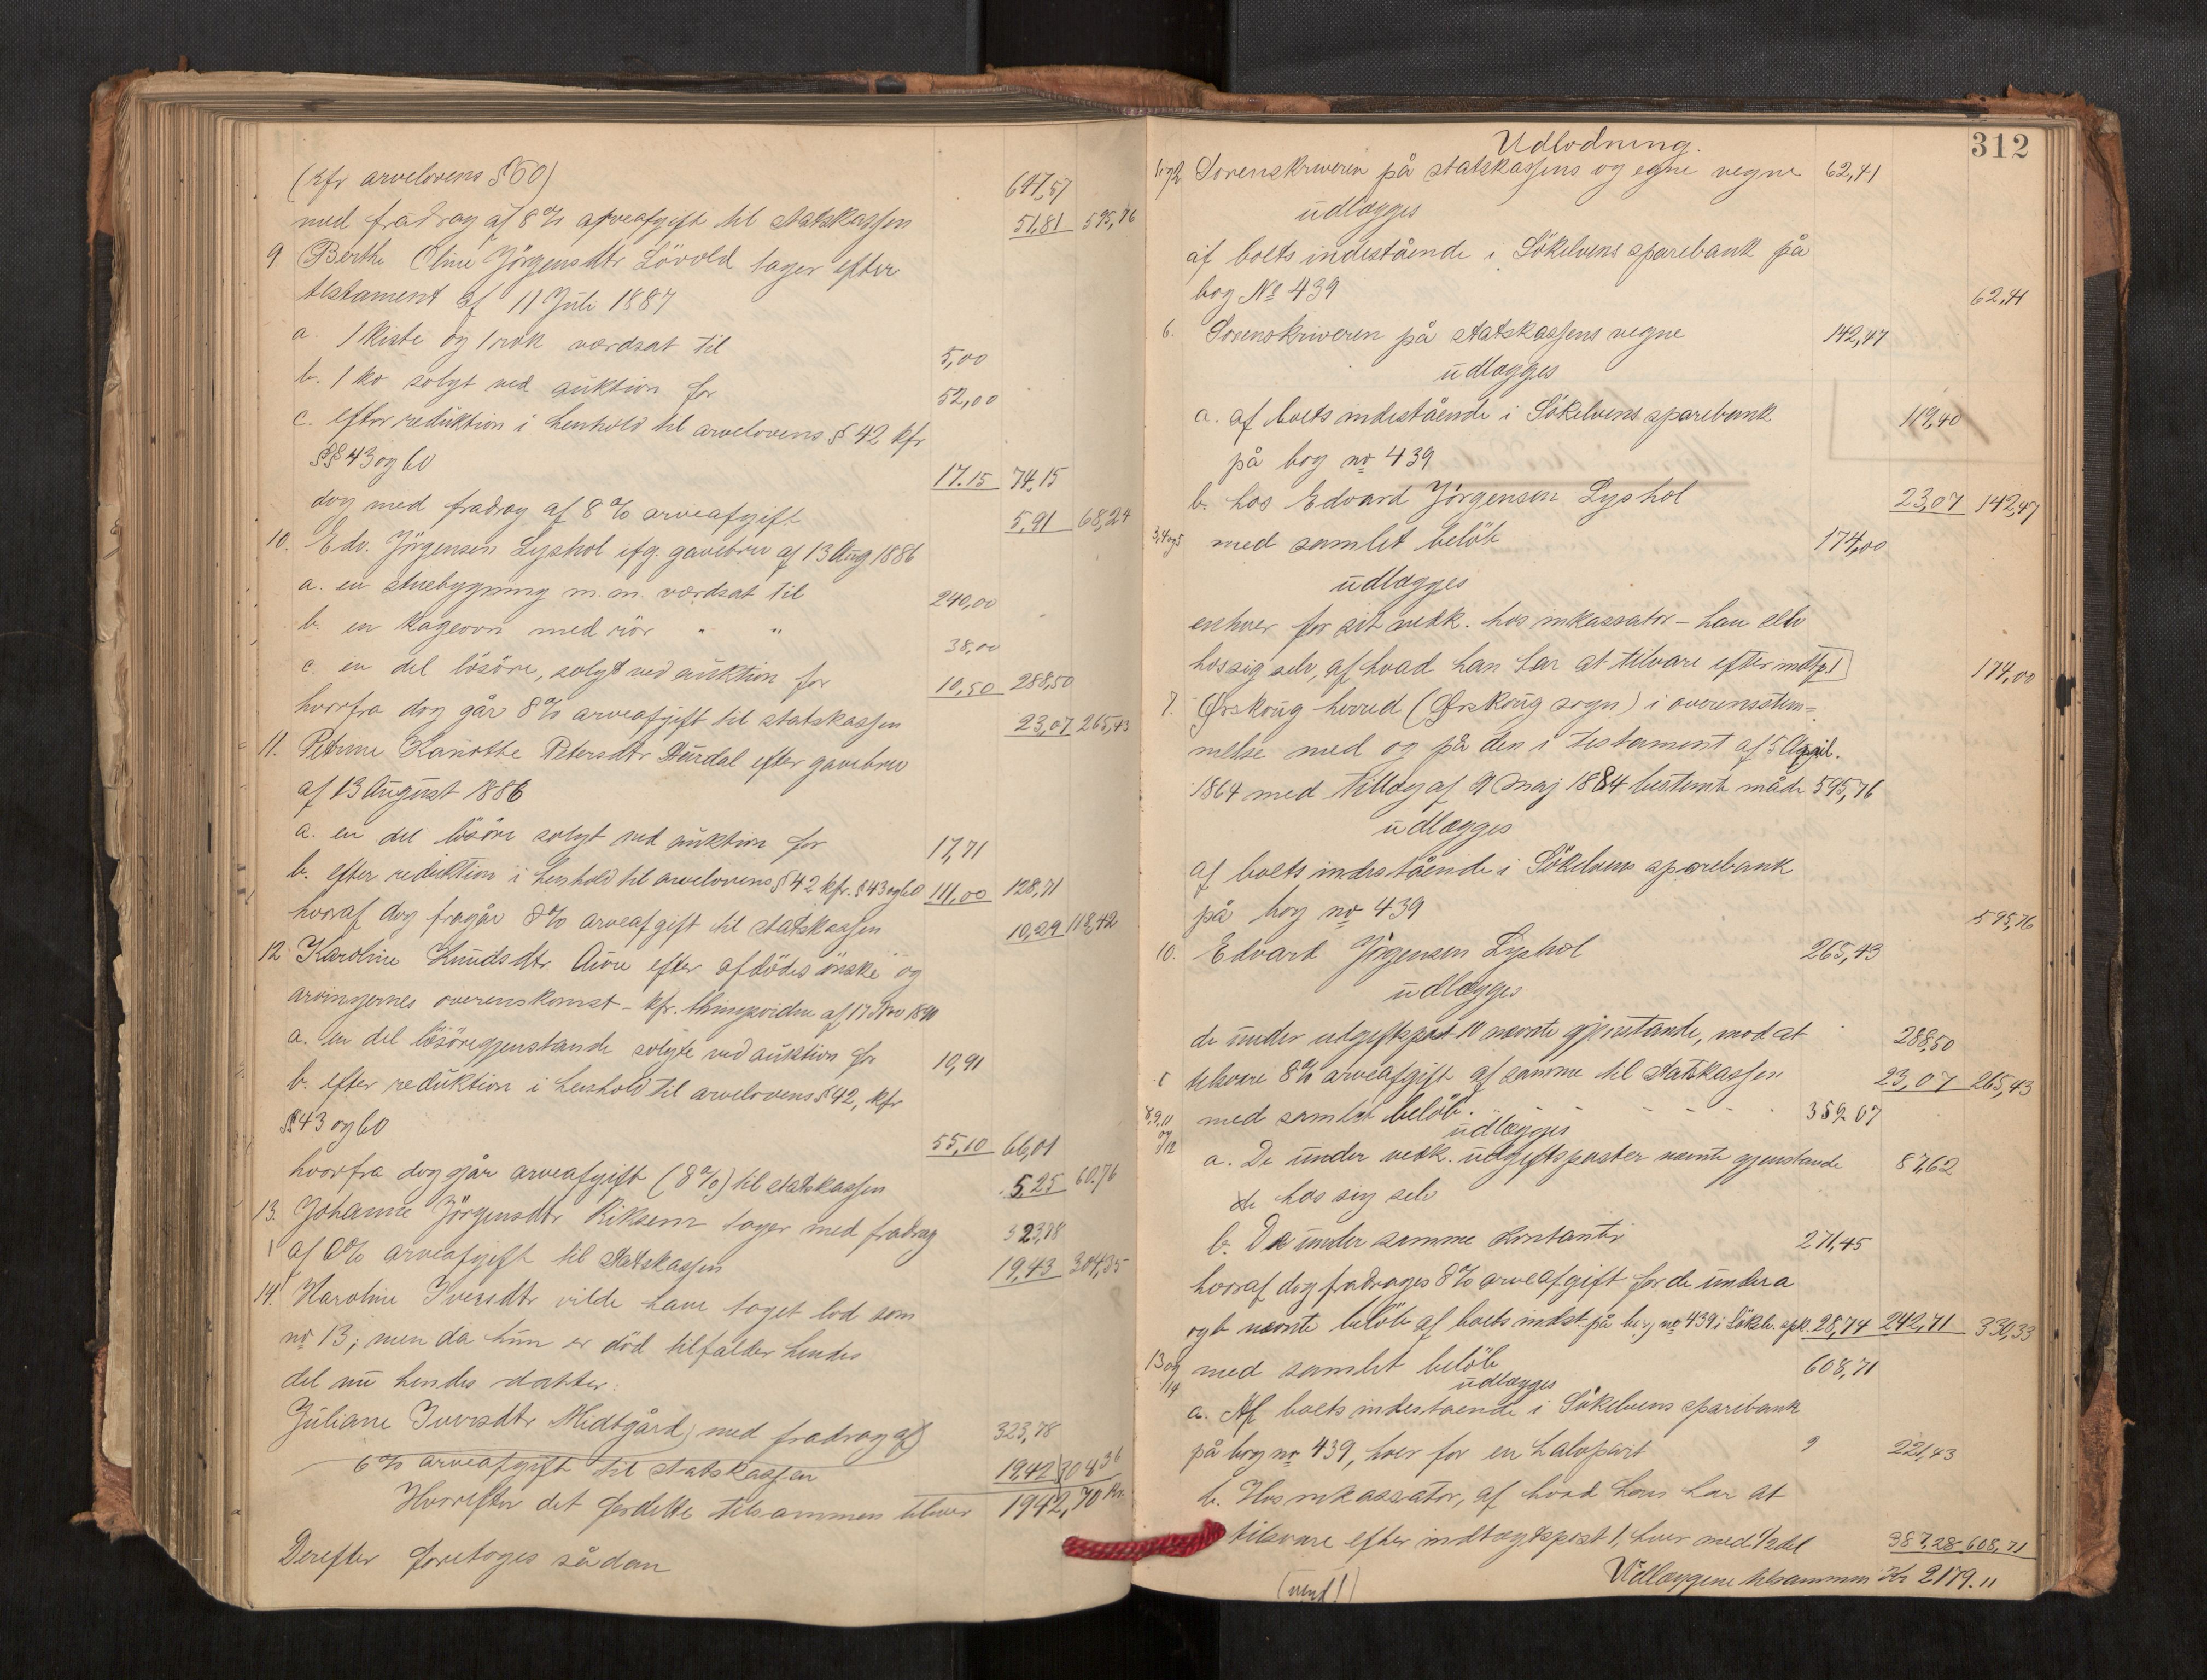 (kfr arvelovens §60) 647,57
med fradrag af 8% arveafgift til statskassen 51,81 595,76
9. Berthe Oline Jörgensdtr Lövold tager efter
testament af 11 Juli 1887
a. 1 kiste og 1 rok værdsat til 5,00
b. 1 ko solgt ved auktion for 52,00
c. efter reduktion i henhold til arvelovens § 42 kfr
§§ 43 og 60 17.15 74,15
dog med fradrag af 8% arveafgift 5,91 68,24
10. Edv. Jörgensen Lyshol ifg. gavebrev af 13 Aug 1886
a. en stuebygning m.m. værdsat til 240,00
b. en kageovn med rör " " 38,00
c. en del lösöre, solgt ved auktion for 10,50 288,50
hvorfra dog går 8% arveafgift til statskassen 23,07 265,43
11. Petrine Petersdtr efter gavebrev
af 13 August 1886
a. en del lösöre solgt ved auktion for 17,71
b. efter reduktion i henhold til arvelovens § 42 kfr. § 43 og 60 111,00 128,71
hvoraf dog fragår 8% arveafgift til statskassen 10,29 118,42
12. Karoline Knudsdtr Aure efter afdödes önske og
arvingernes overenskomst - kfr. thingsvidne af 17 Nov 1890
a. en del lösöregjenstande solgte ved auktion for 10,91
b. efter reduktion i henhold til arvelovens § 42, kfr
§ 43 og 60 55,10 66,01
hvorfra dog går arveafgift (8%) til statskassen 5,25 60.76
13. Johanne Jörgensdtr Riksem tager med fradrag 323,78
af 6% arveafgift til statskassen 19,43 304,35
14. Karoline Iversdtr vilde have taget lod som
no 13; men da hun er död tilfalder hendes
del nu hendes datter:
Juliane Iversdtr Midtgård, med fradrag af 323,78
6% arveafgift til statskassen 19,42 304 36
Hvorefter det fordelte tilsammen bliver 1942,70 Kr.
Derefter foretages sådan
312
Udlodning.
1 og 2 Sorenskriveren på statskassens og egne vegne 62,41
udlægges
af boets indestående i Sökelvens sparebank på
bog No 439 62,41
6. Sorenskriveren på statskassens vegne 142,47
udlægges
a. af boets indestående i Sökelvens sparebank 119,40
på bog no 439
b. hos Edvard Jörgensen Lyshol 23,07 142,47
3,4 og 5 med samlet belöb 174,00
udlægges
enhver for sit vedk. hos inkassator - han selv
hos sig selv, af hvad han har at tilsvare efter indtp. 1 174,00
7. Ørskoug herred (Ørskoug sogn) i overensstem=
melse med og på den i testament af 5 April.
1864 med tillæg af 9 Maj 1884 bestemte måde 595,76
udlægges
af boets indestående i Sökelvens sparebank
på bog no 439 595,76
10. Edvard Jörgensen Lyshol 265,43
udlægges
de under udgiftspost 10 nævnte gjenstande, mod at 288,50
tilsvare 8% arveafgift af samme til statskassen 23,07 265,43
8,9,11 og 12 med samlet belöb. 359,07
udlægges
a. De under vedk. udgiftsposter nævnte gjenstande 87,62
de hos sig selv
b. De under samme kontanter 271,45
hvoraf dog fradrages 8% arveafgift for de under a
og b nævnte belöb af boets indst. på bog no 439 i Sökelv. spk. 28,74 242,71 330,33
13 og 14 med samlet belöb 608,71
udlægges
a. Af boets indestaaende i Sökelvens sparebank
på bog no 439, hver for en halvpart 221,43
b. Hos inkassator, af hvad han har at
tilsvare efter indtægtspost 1, hver med 1/2 del 387,28 608,71
Udlæggene tilsammen Kr 2179.11
(vend!)